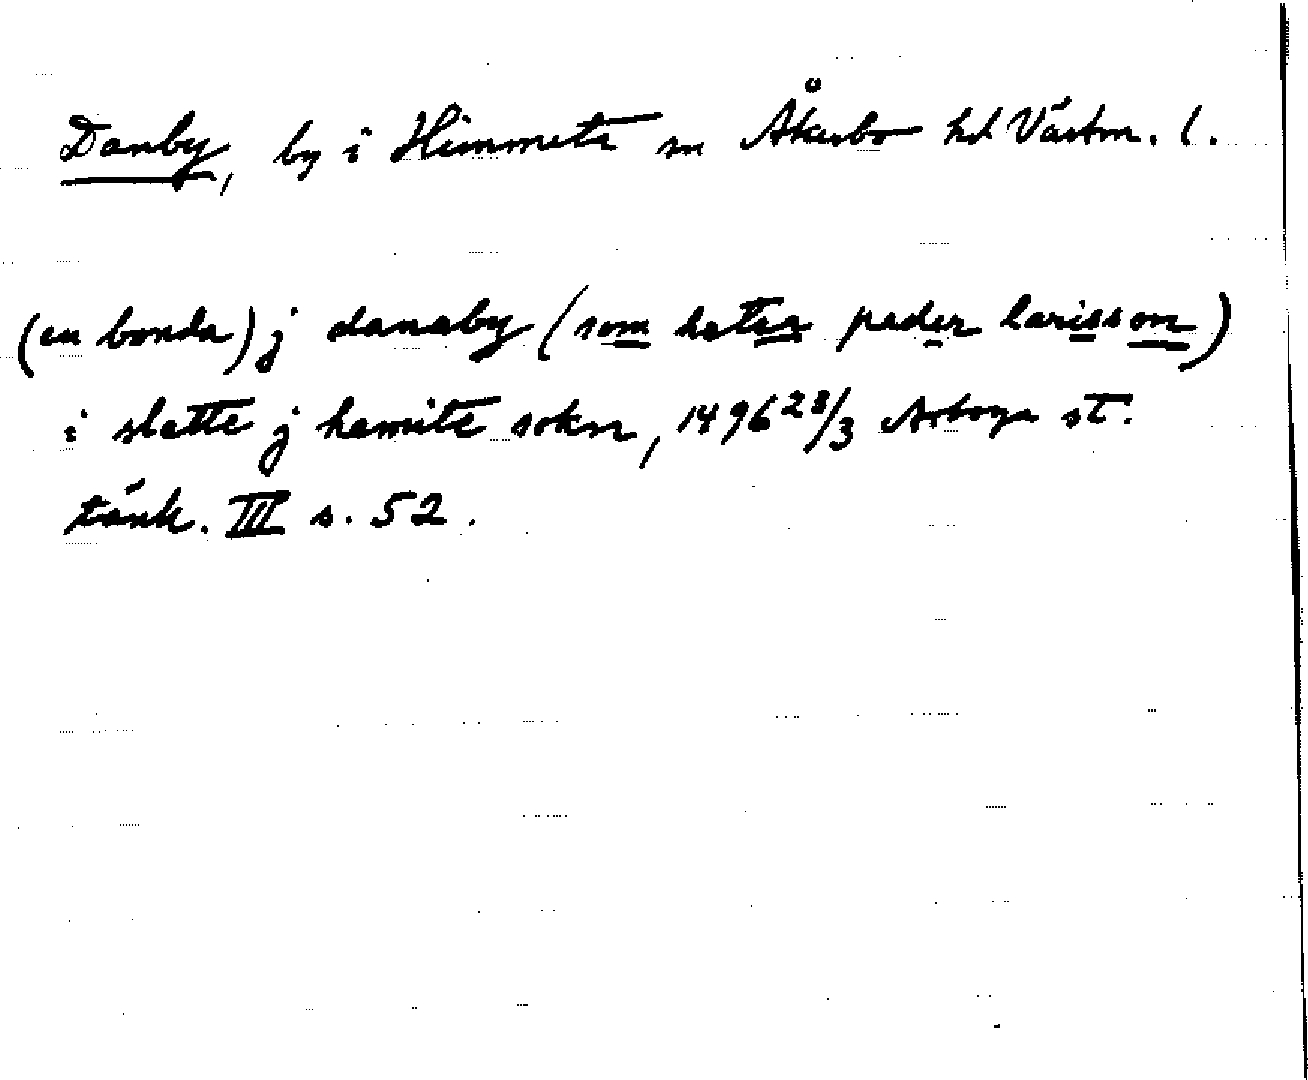 Danby, by i Himmeta sn Åkerbo hd Västm. l.
(en bonda) j danaby (som heter peder larisson)
i slette j hemite sokn, 1496 28/3 Arboga st.
tänk. III s. 52.